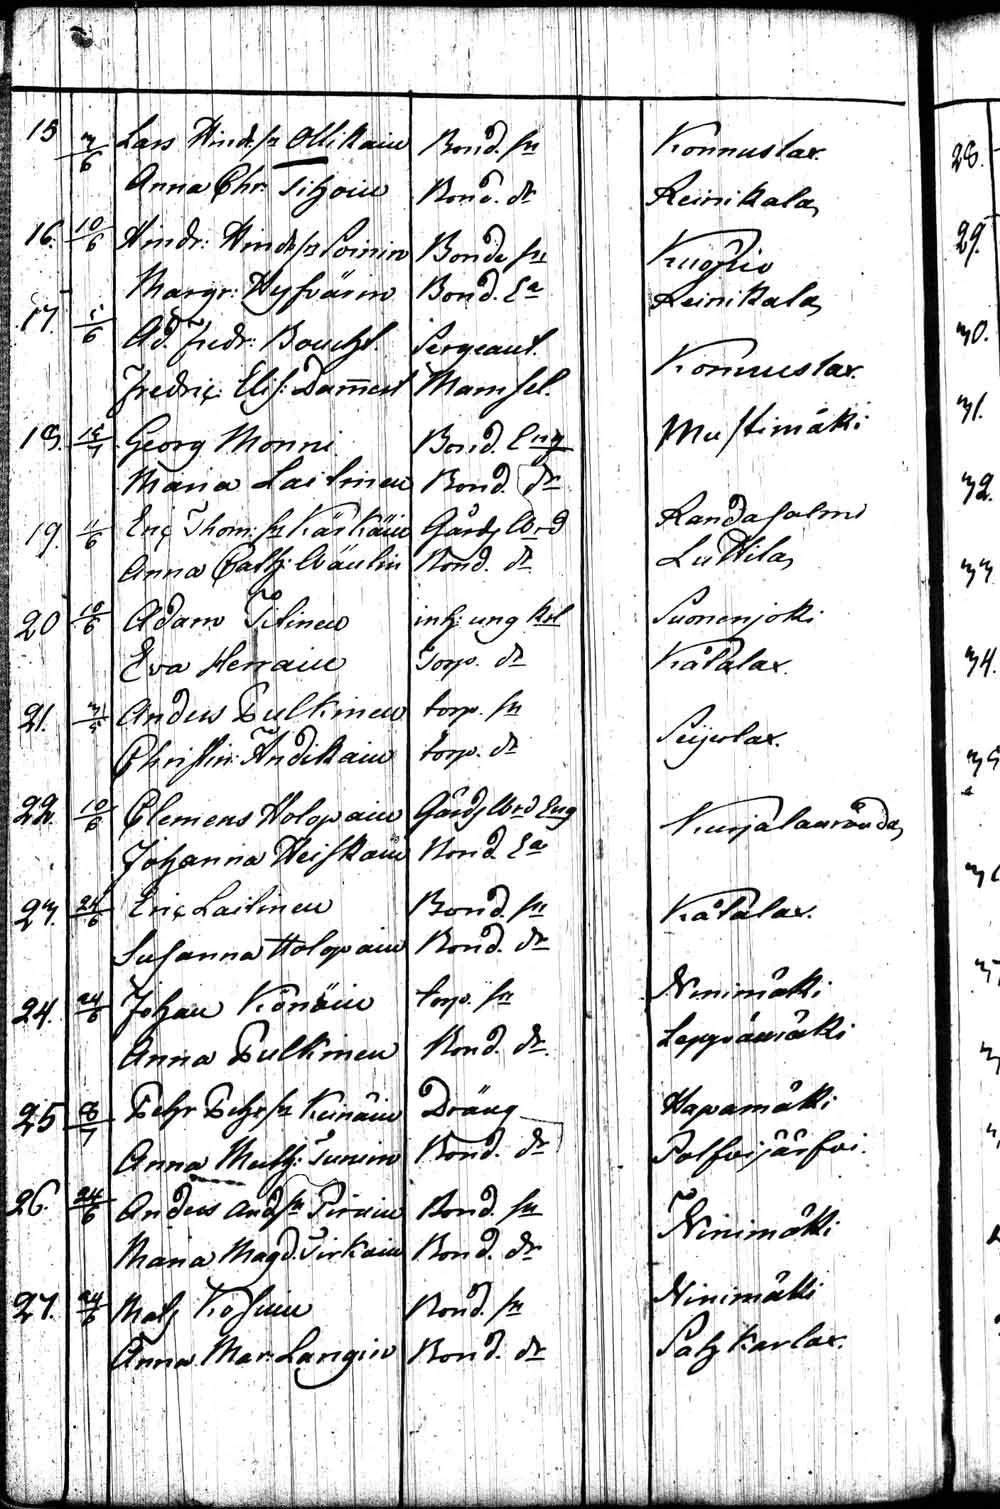 15 3/6 Lars Hind: sn Ollikain Bond. sn Konnuslax.
Anna Chr: Tihoin Bond. dr Reinikala,
16. 10/6 Hindr: Hindr sn Soinin Bonde sn Kuopio
Margr: Hyfvärin Bond. Ea Reinikala,
17 1/6 Ad. Fredr: Boucht. Sergeant.
Fredriç: Elis: Dam̄ert Mamsel. Konnuslax.
18. 15/7 Georg Monni Bond. Eng Mustimäki
Maria Laitinen Bond. dr
19. 11/6 Eriç Thom: sn Kärkäin Gårds Wrd Randasalmi
Anna Cath: Wäulin Bond. dr Luttila,
20 10/6 Adam Titinen inh: ung karl Suonenjoki
Eva Herrain Torp. dr Kåtalax.
21. 31/5 Anders Pulkinen torp. sn
Christin: Andikain torp. dr Seijerlax.
22. 10/6 Clemens Holopain Gårds Wrd Eng Kurjalanranda,
Johanna Heiskain Bond Ea
23. 24/6 Eriç Laitinen Bond. sn Kåtalax.
Susanna Holopain Bond. dr
24. 24/6 Johan Könöin torp. sn Ninimäki
Anna Pulkinen Bond. dr. Leppämäki
25 8/7 Pehr Pehrs sn Kinäin Dräng Hapamäki
Anna Math: Tunin Bond. dr Palfvijärfvi.
26. 24/6 Anders Andsn Pirain Bond. sn Ninimäki
Maria Magd. Tirkain Bond. dr
27. 24/6 Mats Kosuin Bond. sn Ninimäki
Anna Mar: Langin Bond. dr Patzkarlax.
28.
29.
30.
31.
32.
33
34.